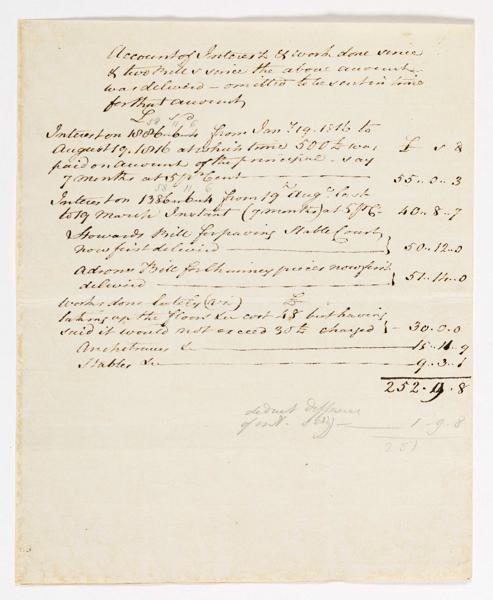 Account of Interest & work done since
& two Bills since the above account
was delivered – omitted to be sent in time
for that account
£ s d
Interest on 1886..6..4 from Jany. 19. 1816 to
August 19. 1816 at which time 500£ was £ s d
paid on account of the principal – say
7 months at 5 pr Cent — 55..0..3
58 11 6
Interest on 1386..6..4 from 19th Augt. last
to 19 March Instant (7 months) at 5 pr C– 40..8..7
Howards Bill for paving Stable Court,
now first delivered — 50..12..0
Adrons Bill for Chimney pieces now first
delivered — 51..14..0
Works done lately (viz) £
taking up the floors &c cost 48 but having
said it would not exceed 30£ charged – 30..0..0
Architraves &c — 15..11..9
Stables &c — 9..3..1
252..9..8
deduct difference
of int. — 1..9..8
251